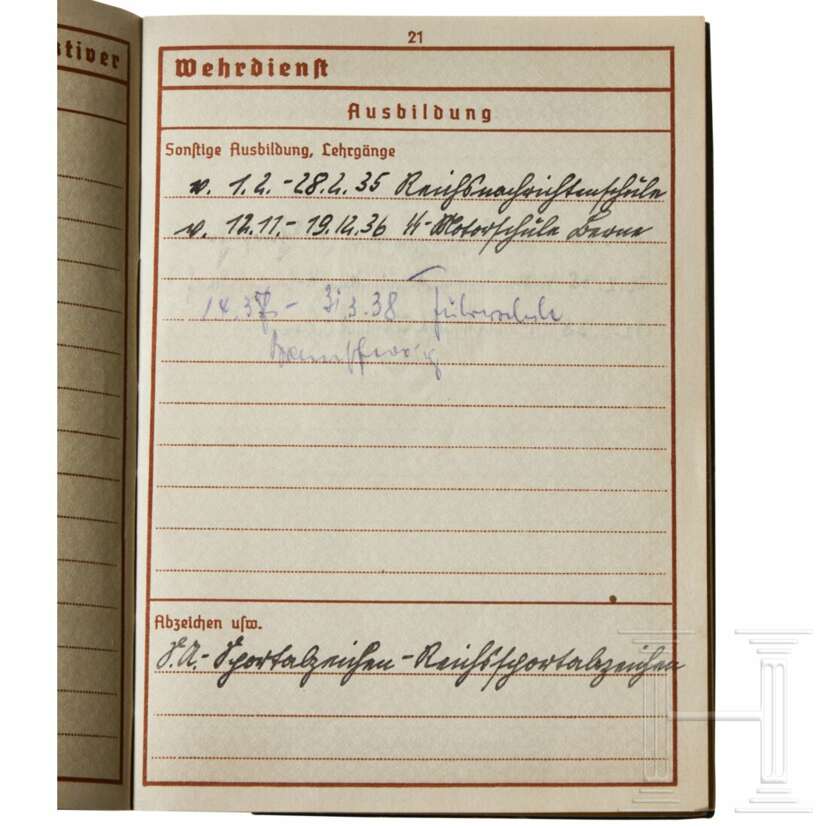 ktiver
21
Wehrdienst
Ausbildung
Sonstige Ausbildung, Lehrgänge
v. 1.2.-28.2.35 Reichsnachrichtenschule
v. 12.11.- 19.12.36 SS-Motorschule Berne
14.37 - 31.3.38 Führerschule
Braunschweig
Abzeichen usw.
S.A.- Sportabzeichen - Reichssportabzeichen